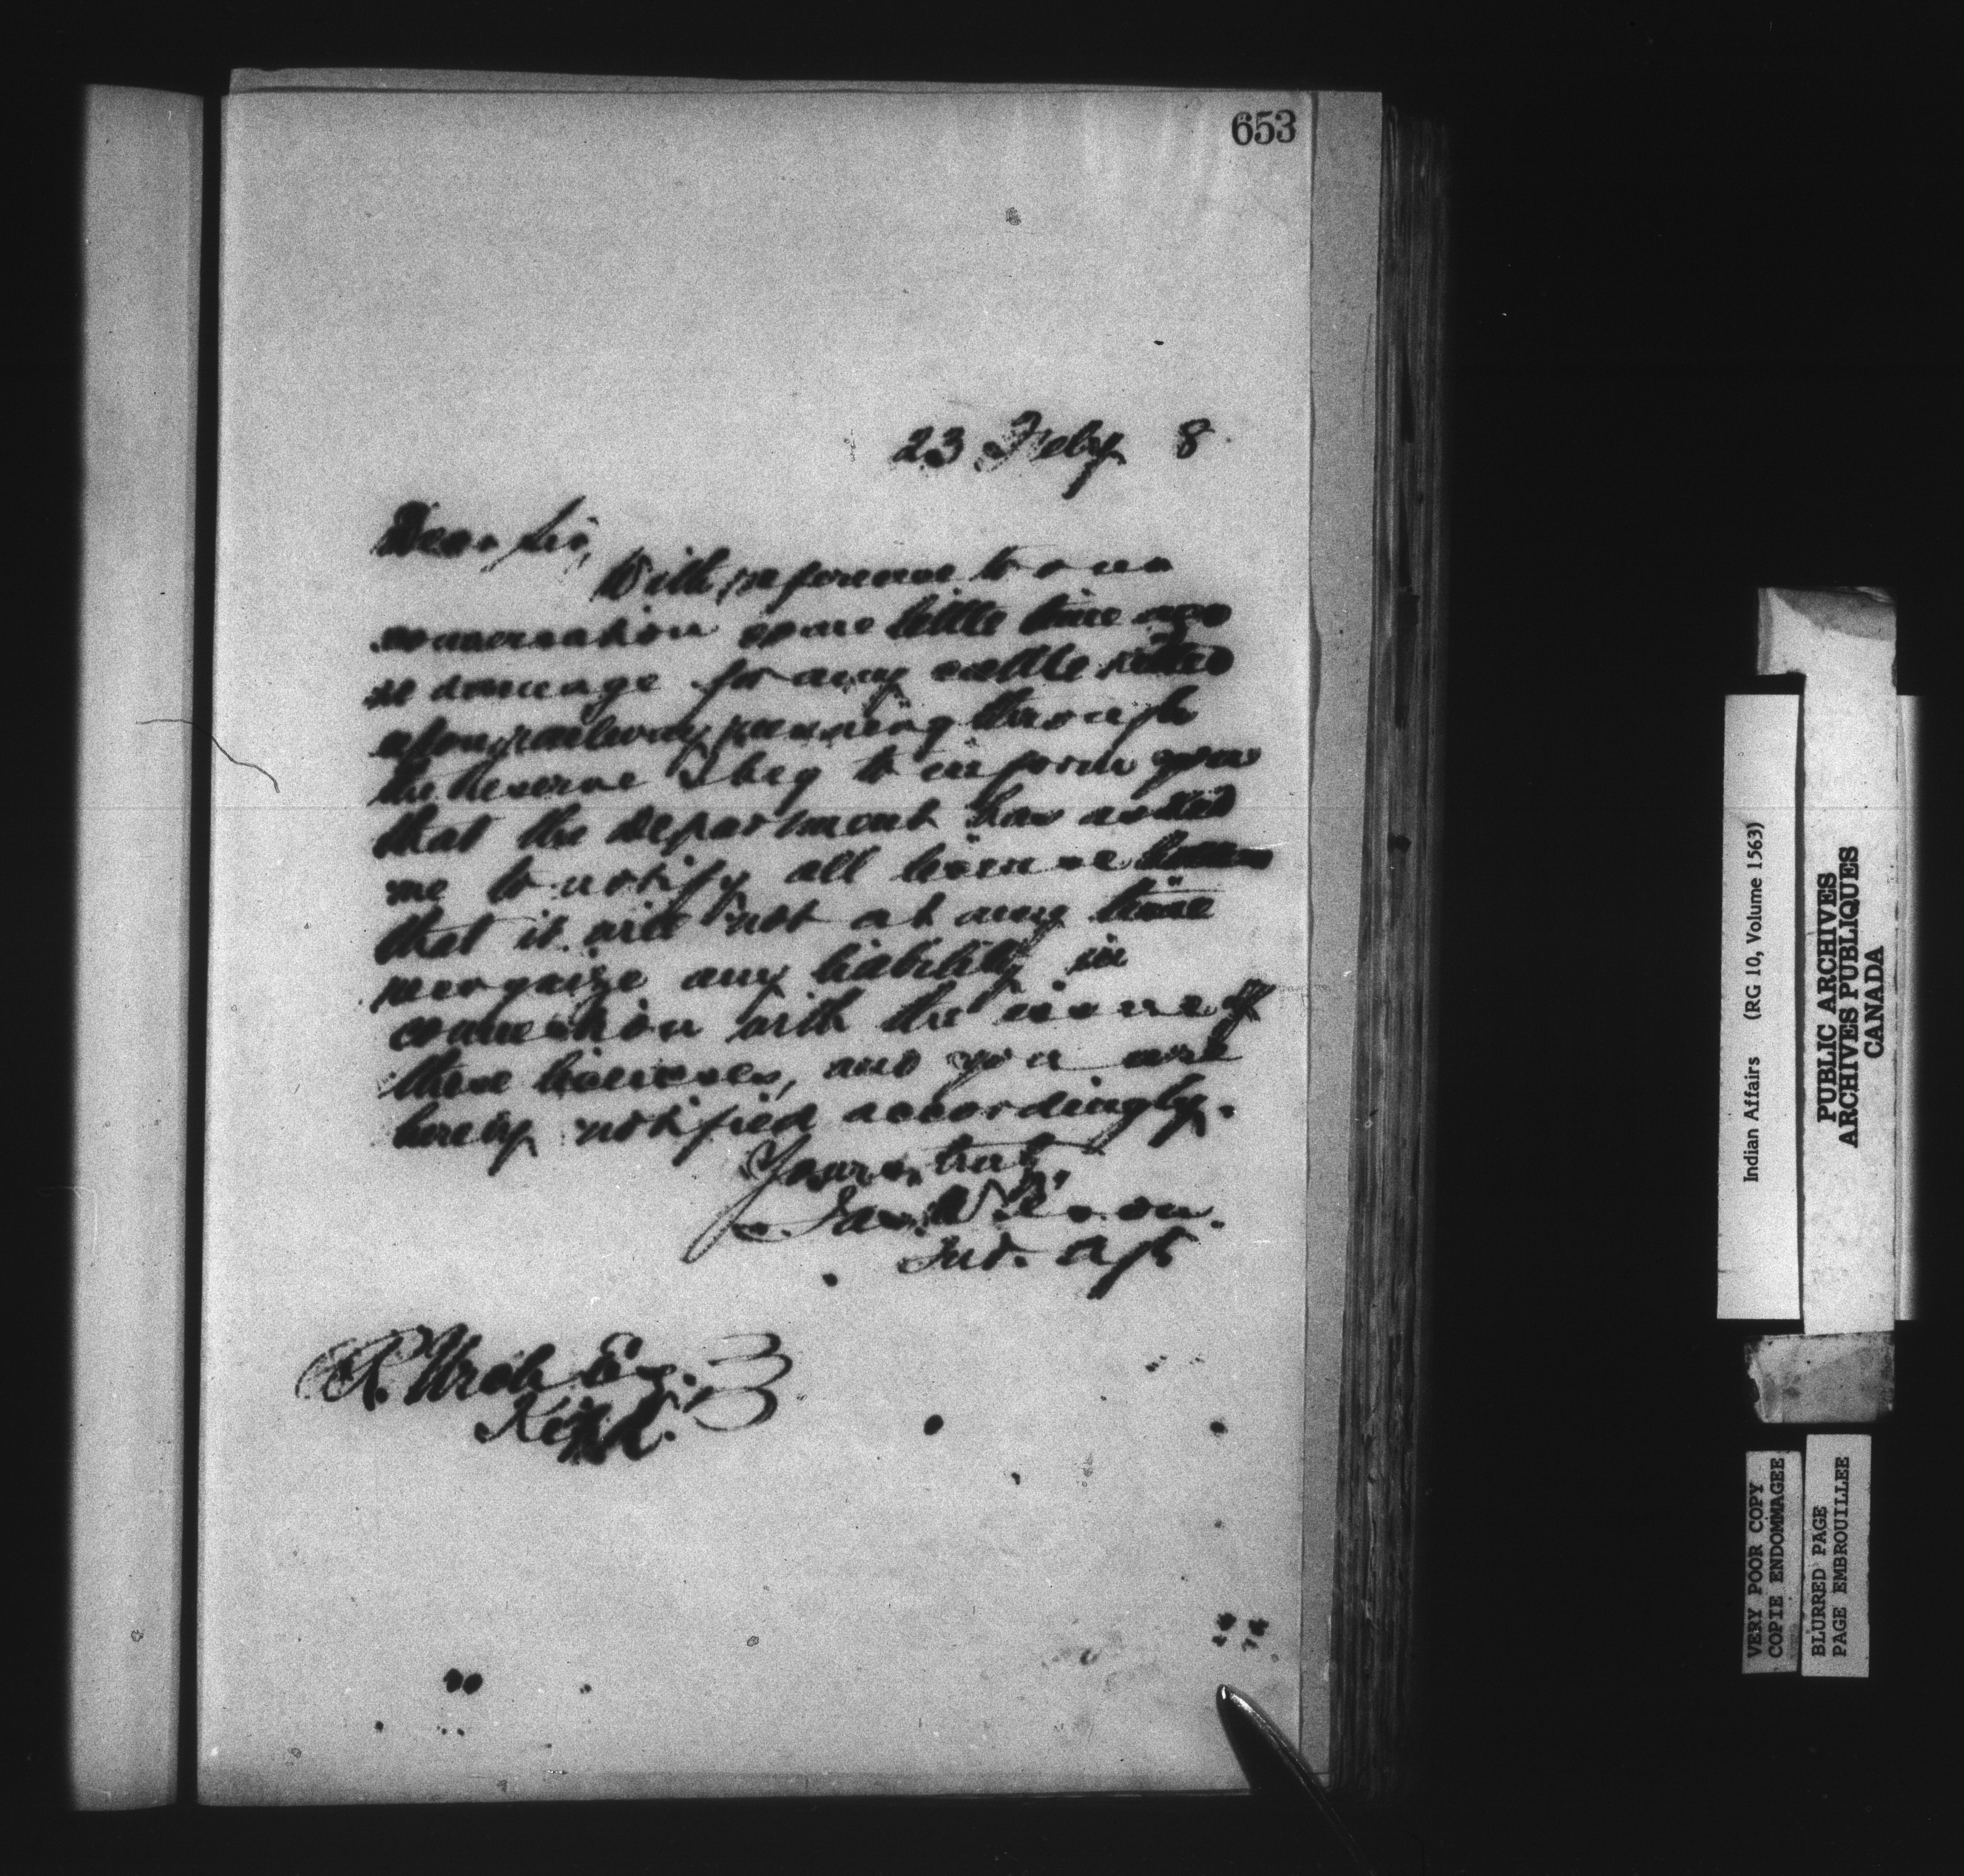 653
23 Feby 8.
Dear Sir,
With reference to our
conversation some little time ago
re damage for any cattle killed
upon railway running through
the Reserve I beg to inform you
that the Department has asked
me to notify all license holders
that it will not at any time
recognize any liability in
connection with the issue of
these licenses, and you are
hereby notified accordingly.
Yours truly,
Jas. Wilson.
Ind. Agt
R. Urch Esq.
Kipp.
Indian Affairs (RG 10, Volume 1563)
PUBLIC ARCHIVES
ARCHIVES PUBLIQUES
CANADA
VERY POOR COPY
COPIE ENDOMMAGEE
BLURRED PAGE
PAGE EMBROUILLEE